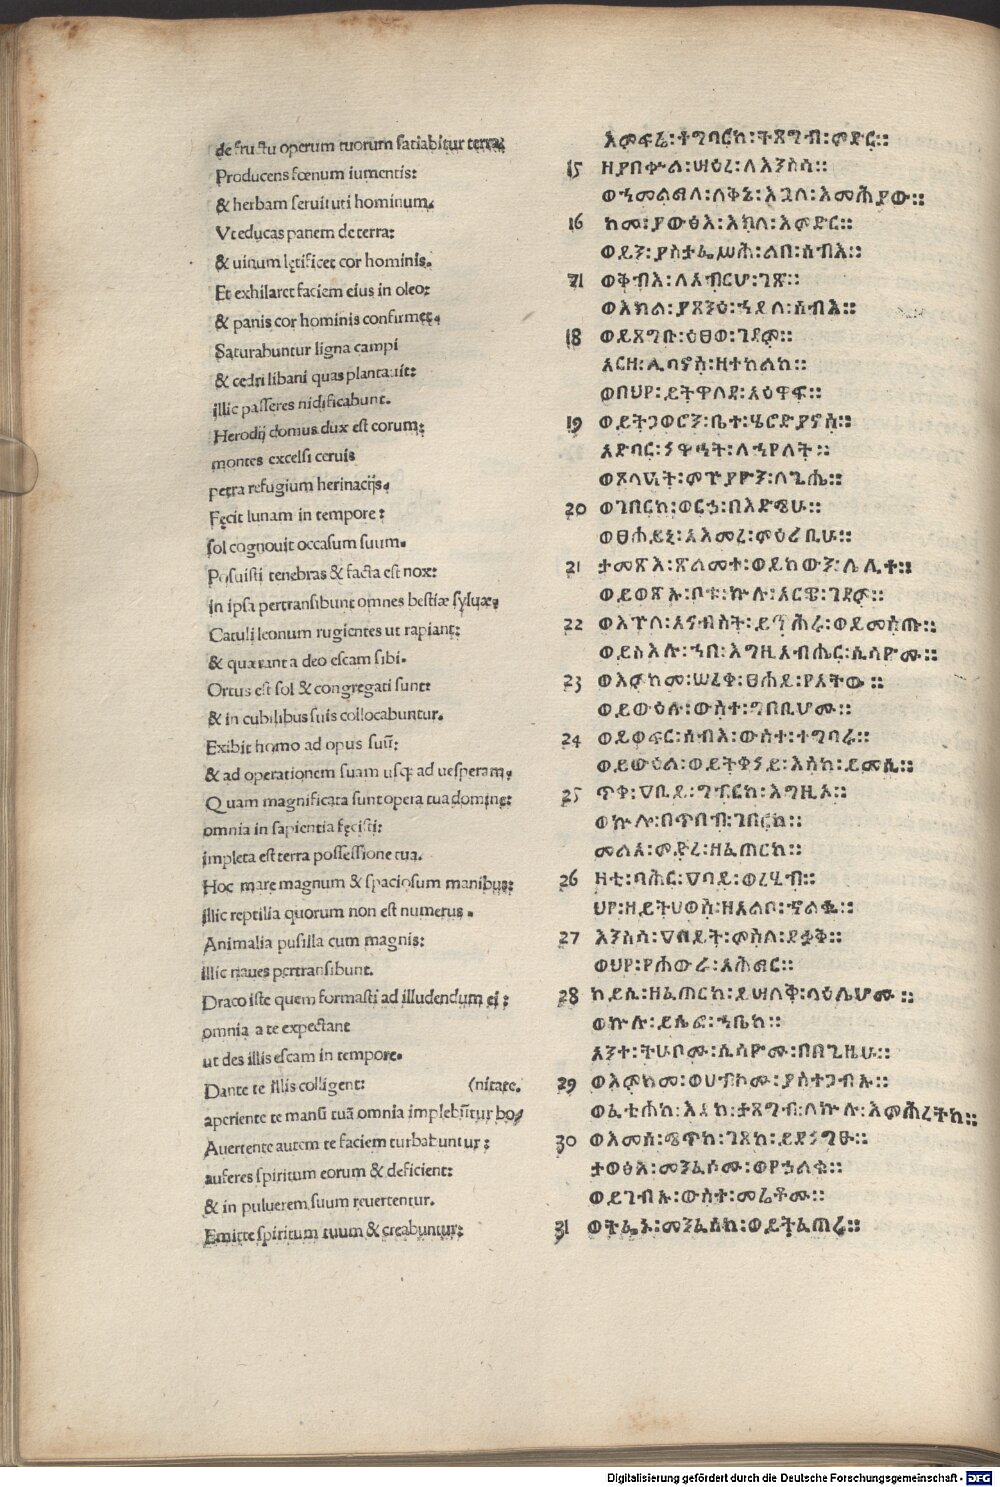 de fructu operum tuorum satiabitur terra:
Producens fœnum iumentis:
& herbam seruituti hominum.
Vt educas panem de terra:
& uinum lętificet cor hominis.
Et exhilaret faciem eius in oleo:
& panis cor hominis confirmet.
Saturabuntur ligna campi
& cedri libani quas plantauit:
illic passeres nidificabunt.
Herodij domus dux est eorum:
montes excelsi ceruis
petra refugium herinacijs.
Fęcit lunam in tempore:
sol cognouit occasum suum.
Posuisti tenebras & facta est nox:
in ipsa pertransibunt omnes bestiæ syluæ:
Catuli leonum rugientes ut rapiant:
& quærant a deo escam sibi.
Ortus est sol & congregati sunt:
& in cubilibus suis collocabuntur.
Exibit homo ad opus suū:
& ad operationem suam usq; ad uesperam.
Quam magnificata sunt opera tua domine:
omnia in sapientia fęcisti:
impleta est terra possessione tua.
Hoc mare magnum & spaciosum manibus:
illic reptilia quorum non est numerus.
Animalia pusilla cum magnis:
illic naues pertransibunt.
Draco iste quem formasti ad illudendum ei:
omnia a te expectant
ut des illis escam in tempore.
Dante te illis colligent: (nitate.
aperiente te manū tuā omnia implebūtur bo/
Auertente autem te faciem turbabuntur:
auferes spiritum eorum & deficient:
& in puluerem suum reuertentur.
Emitte spiritum tuum & creabuntur:
እምፍሬ፡ተግባርከ፡ትጸግብ፡ምድር።
15 ዘያበቍል፡ሣዕረ፡ለእንስሳ።
ወኀመልማለ፡ለቅኔ፡እጓለ፡እመሕያው።
16 ከመ፡ያውፅእ፡እክለ፡እምድር።
ወይን፡ያስተፌሥሕ፡ልበ፡ሰብእ።
71 ወቅብእ፡ለአብርሆ፡ገጽ።
ወእክል፡ያጸንዕ፡ኀይለ፡ሰብእ።
18 ወይጸግቡ፡ዕፀወ፡ገዳም።
አርዘ፡ሊባኖስ፡ዘተከልከ።
ወበህየ፡ይትዋለዳ፡አዕዋፍ።
19 ወይትጋወሮን፡ቤተ፡ሄሮድያኖስ።
አድባር፡ነዋኃት፡ለኀየላት።
ወጸላዒት፡ምጕያዮን፡ለጊሔ።
20 ወገበርከ፡ወርኃ፡በእድሜሁ።
ወፀሐይኒ፡አእመረ፡ምዕራቢሁ።
21 ታመጽእ፡ጽልመተ፡ወይከውን፡ሌሊተ።
ወይወጽኡ፡ቦቱ፡ኵሉ፡አርዌ፡ገዳም።
22 ወእጕለ፡አናብስት፡ይጥሕሩ፡ወይመስጡ።
ወይስእሉ፡ኀበ፡እግዚአብሔር፡ሲሳዮሙ።
23 ወእምከመ፡ሠረቀ፡ፀሐይ፡የአትው።
ወይውዕሉ፡ውስተ፡ግበቢሆሙ።
24 ወይወፍር፡ሰብእ፡ውስተ፡ተግባሩ።
ወይውዕል፡ወይትቀነይ፡እስከ፡ይመሲ።
25 ጥቀ፡ዐቢይ፡ግብርከ፡እግዚኦ።
ወኵሎ፡በጥበብ፡ገበርከ።
መልአ፡ምድረ፡ዘፈጠርከ።
26 ዛቲ፡ባሕር፡ዐባይ፡ወረሂብ።
ህየ፡ዘይትሀወስ፡ዘአልቦ፡ኍልቈ።
27 እንስሳ፡ዐበይት፡ምስለ፡ደቂቅ።
ወህየ፡የሐውራ፡አሕማር።
28 ከይሲ፡ዘፈጠርከ፡ይሣለቅ፡ላዕሌሆሙ።
ወኵሉ፡ይሴፎ፡ኀቤከ።
አንተ፡ትሁቦሙ፡ሲሳዮሙ፡በበጊዜሁ።
29 ወእምከመ፡ወሀብኮሙ፡ያስተጋብኡ።
ወፈቲሐከ፡እደከ፡ታጸግብ፡ለኵሉ፡እምሕረትከ።
30 ወእመሰ፡ሜጥከ፡ገጸከ፡ይደነግፁ።
ታወፅእ፡መንፈሶሙ፡ወየኃልቁ።
ወይገብኡ፡ውስተ፡መሬቶሙ።
31 ወትፌኑ፡መንፈሰከ፡ወይትፈጠሩ።
Digitalisierung gefördert durch die Deutsche Forschungsgemeinschaft - DFG